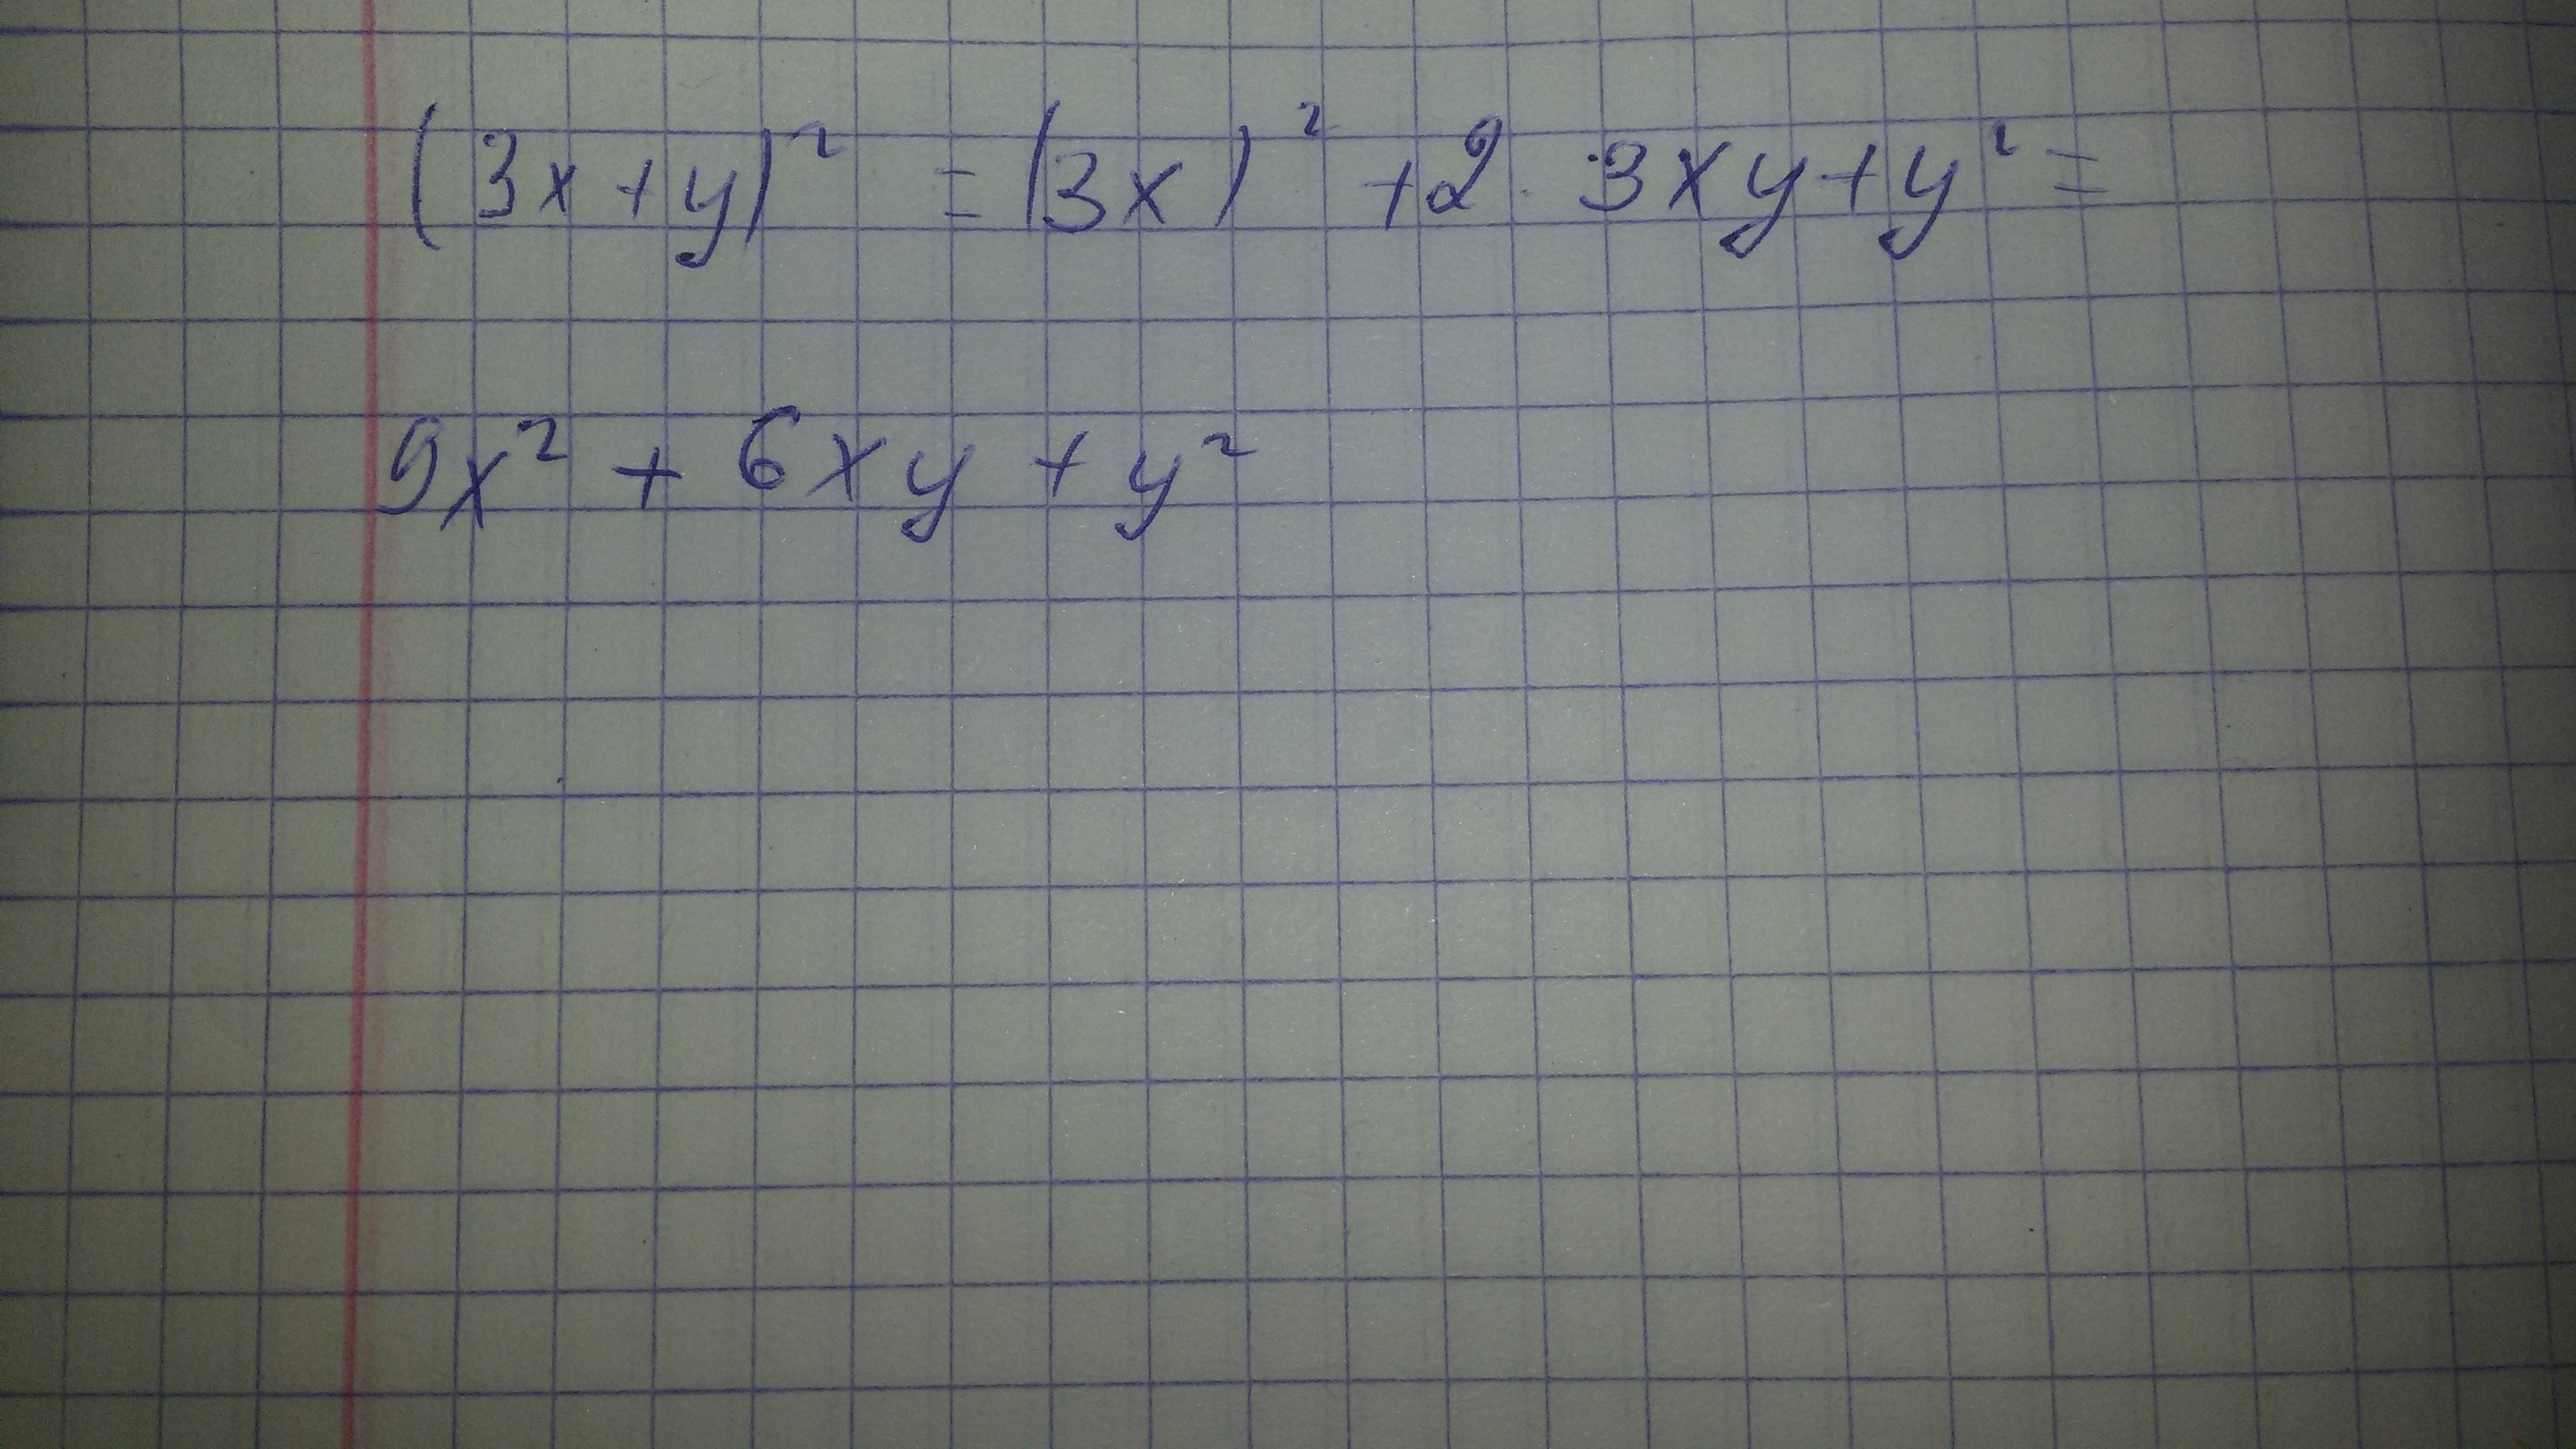 (3x+y)² = (3x)² + 2 · 3xy + y² =
9x² + 6xy + y²